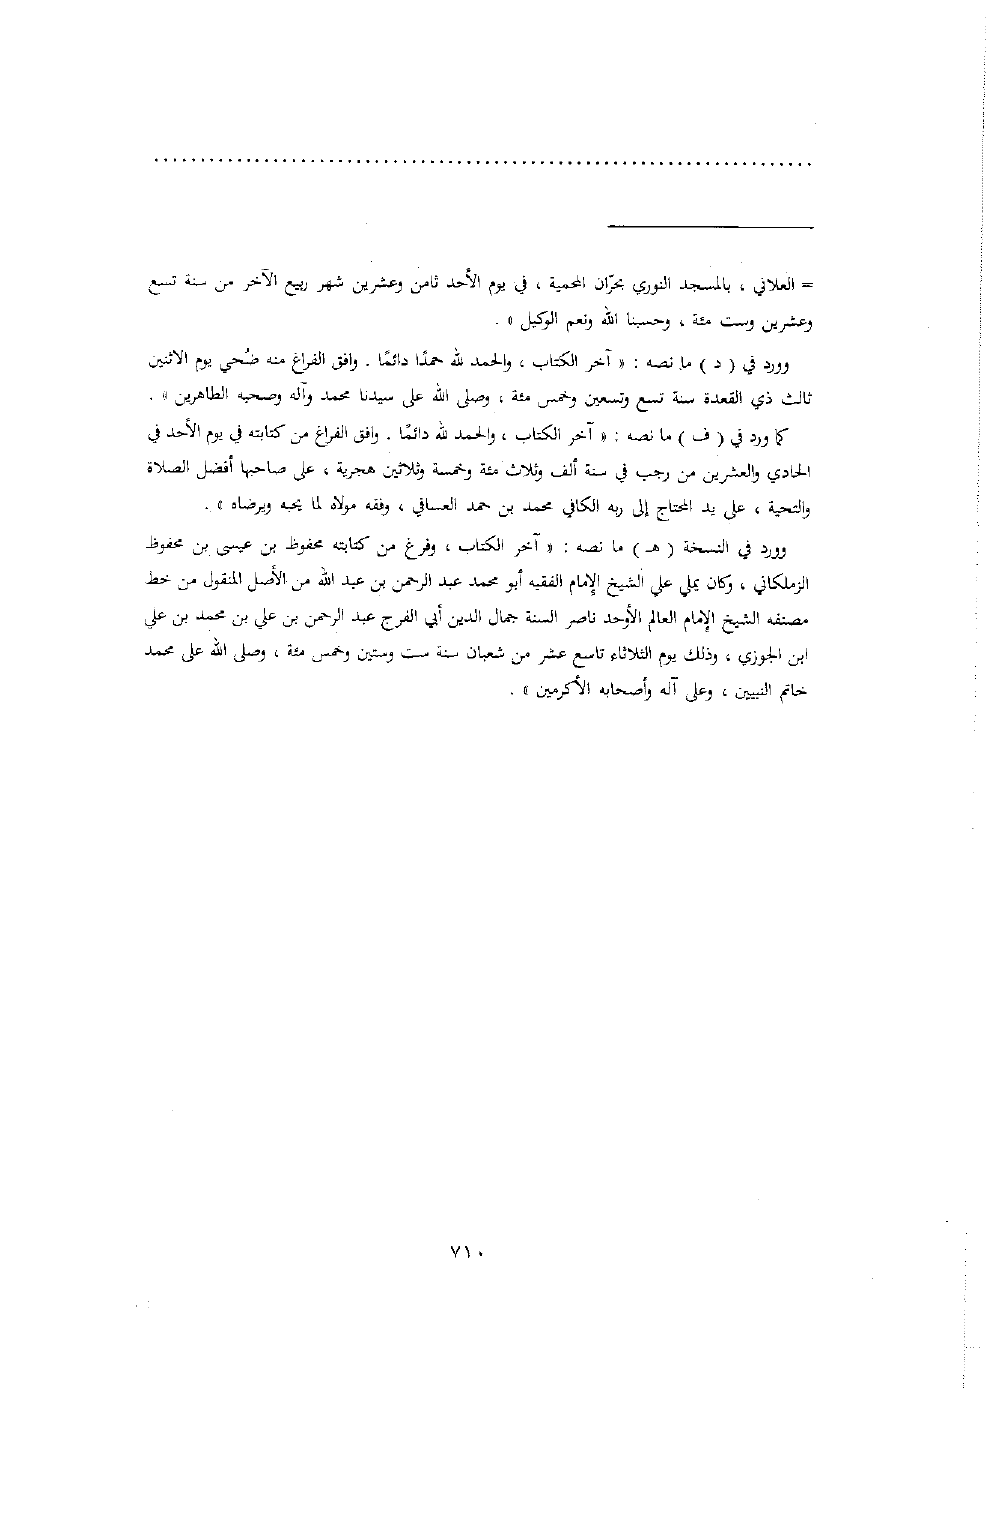 = العلائي ، بالمسجد النوري بحرّان المحمية ، في يوم الأحد ثامن وعشرين شهر ربيع الآخر من سنة تسع
وعشرين وست مئة ، وحسبنا الله ونعم الوكيل » .
وورد في ( د ) ما نصه : « آخر الكتاب ، والحمد لله حمدًا دائمًا . وافق الفراغ منه ضُحي يوم الاثنين
ثالث ذي القعدة سنة تسع وتسعين وخمس مئة ، وصلى الله على سيدنا محمد وآله وصحبه الطاهرين » .
كما ورد في ( ف ) ما نصه : « آخر الكتاب ، والحمد لله دائمًا . وافق الفراغ من كتابته في يوم الأحد في
الحادي والعشرين من رجب في سنة ألف وثلاث مئة وخمسة وثلاثين هجرية ، على صاحبها أفضل الصلاة
والتحية ، على يد المحتاج إلى ربه الكافي محمد بن حمد العسافي ، وفقه مولاه لما يحبه ويرضاه » .
وورد في النسخة ( هـ ) ما نصه : « آخر الكتاب ، وفرغ من كتابته محفوظ بن عيسى بن محفوظ
الزملكاني ، وكان يملي علي الشيخ الإمام الفقيه أبو محمد عبد الرحمن بن عبد الله من الأصل المنقول من خط
مصنفه الشيخ الإمام العالم الأوحد ناصر السنة جمال الدين أبي الفرج عبد الرحمن بن علي بن محمد بن علي
ابن الجوزي ، وذلك يوم الثلاثاء تاسع عشر من شعبان سنة ست وستين وخمس مئة ، وصلى الله على محمد
خاتم النبيين ، وعلى آله وأصحابه الأكرمين » .
٧١٠